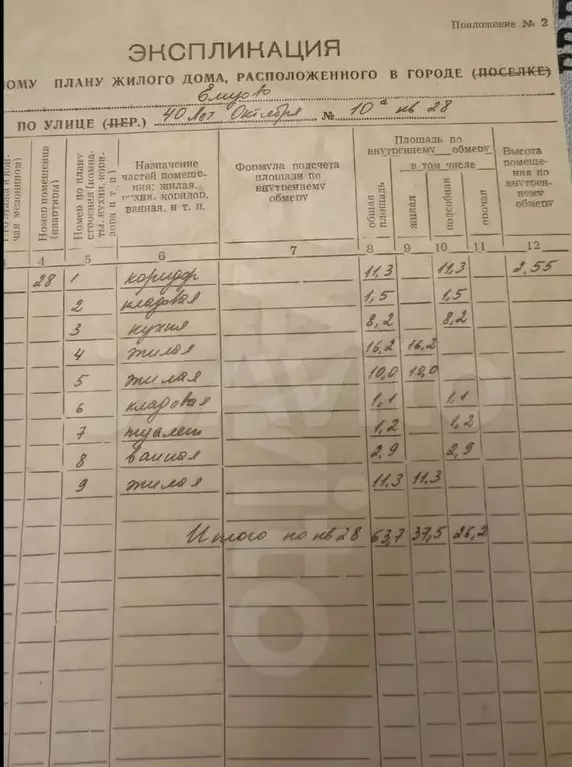 Приложение № 2
ЭКСПЛИКАЦИЯ
ПЛАНУ ЖИЛОГО ДОМА, РАСПОЛОЖЕННОГО В ГОРОДЕ (ПОСЕЛКЕ)
Елизово
ПО УЛИЦЕ (ПЕР.) 40 лет Октября № 10а кв 28
Номер помещения (квартиры)
Номер по плану строения (комната, кухни, коридора и т. д.)
Назначение
частей помеще-
ния: жилая,
кухня, коридор,
ванная, и т. п.
Формула подсчета
площади по
внутреннему
обмеру
Площадь по
внутреннему обмеру
в том числе
общая площадь
жилая
подсобная
прочая
Высота
помеще-
ния по
внутрен-
нему
обмеру
4 5 6 7 8 9 10 11 12
28 1 коридор 11,3 11,3 2.55
2 кладовая 1,5 1,5
3 кухня 8,2 8,2
4 жилая 16,2 16,2
5 жилая 10,0 10,0
6 кладовая 1,1 1,1
7 туалет 1,2 1,2
8 ванная 2,9 2,9
9 жилая 11,3 11,3
Итого по кв 28 63,7 37,5 26,2